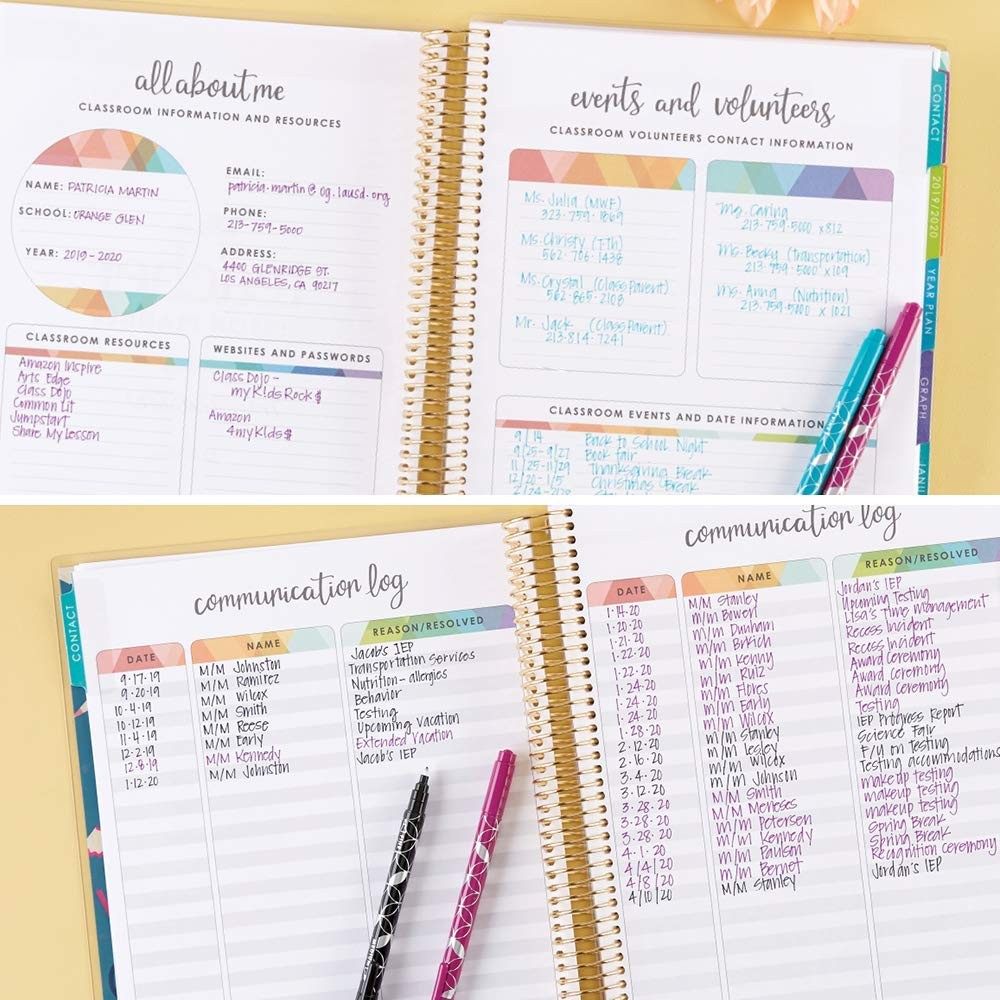 all about me
CLASSROOM INFORMATION AND RESOURCES
NAME: PATRICIA MARTIN
SCHOOL: ORANGE GLEN
YEAR: 2019-2020
EMAIL:
patricia-martin@og.lausd.org
PHONE:
213-759-5000
ADDRESS:
4400 GLENRIDGE ST.
LOS ANGELES, CA 90217
CLASSROOM RESOURCES
Amazon Inspire
Arts Edge
Class Dojo
Common Lit
Jumpstart
Share My Lesson
WEBSITES AND PASSWORDS
Class Dojo -
my K!ds Rock $
Amazon
4myK!ds$
events and volunteers
CLASSROOM VOLUNTEERS CONTACT INFORMATION
Ms. Julia (MWF)
323-759-1869
Ms. Christy (T-Th)
562-706-1438
Ms. Crystal (Class Parent)
562-865-2108
Mr. Jack (Class Parent)
213-814-7241
Mrs. Caring
213-759-5000 x812
Ms. Becky (Transportation)
213-759-5000 x109
Ms. Anna (Nutrition)
213-759-5000 x1021
CLASSROOM EVENTS AND DATE INFORMATION
9/14 Back to School Night
9/25-9/27 Book fair
11/25-11/29 Thanksgiving Break
12/20-1/5 Christmas Break
CONTACT
2019/2020
YEAR PLAN
GRAPH
CONTACT
communication log
DATE NAME REASON/RESOLVED
9·17·19 M/M Johnston Jacob's IEP
9·20·19 M/M Ramirez Transportation Services
10·4·19 M/M Wilcox Nutrition- allergies
10·12·19 M/M Smith Behavior
11·4·19 M/M Reese Testing
12·2·19 M/M Early Upcoming vacation
12·8·19 M/M Kennedy Extended vacation
1·12·20 M/M Johnston Jacob's IEP
communication log
DATE NAME REASON/RESOLVED
1·14·20 M/M Stanley Jordan's IEP
1·20·20 m/m Bowen Upcoming Testing
1·21·20 m/m Dunham Lisa's Time Management
1·22·20 m/m Brkich Recess Incident
1·22·20 m/m Kenny Recess Incident
1·24·20 m/m Ruiz Award Ceremony
1·24·20 m/m Flores Award Ceremony
1·24·20 m/m Early Award Ceremony
1·28·20 m/m Wilcox Testing
2·12·20 m/m Stanley IEP Progress Report
2·16·20 m/m Lesley Science Fair
3·4·20 m/m Wilcox F/U on Testing
3·12·20 m/m Johnson Testing accommodations
3·28·20 M/M Smith makeup testing
3·28·20 M/M Meneses makeup testing
3·28·20 m/m Petersen makeup testing
4·1·20 m/m Kennedy Spring Break
4/4/20 m/m Paulson Spring Break
4/8/20 m/m Bernet Recognition Ceremony
4/10/20 M/M Stanley Jordan's IEP